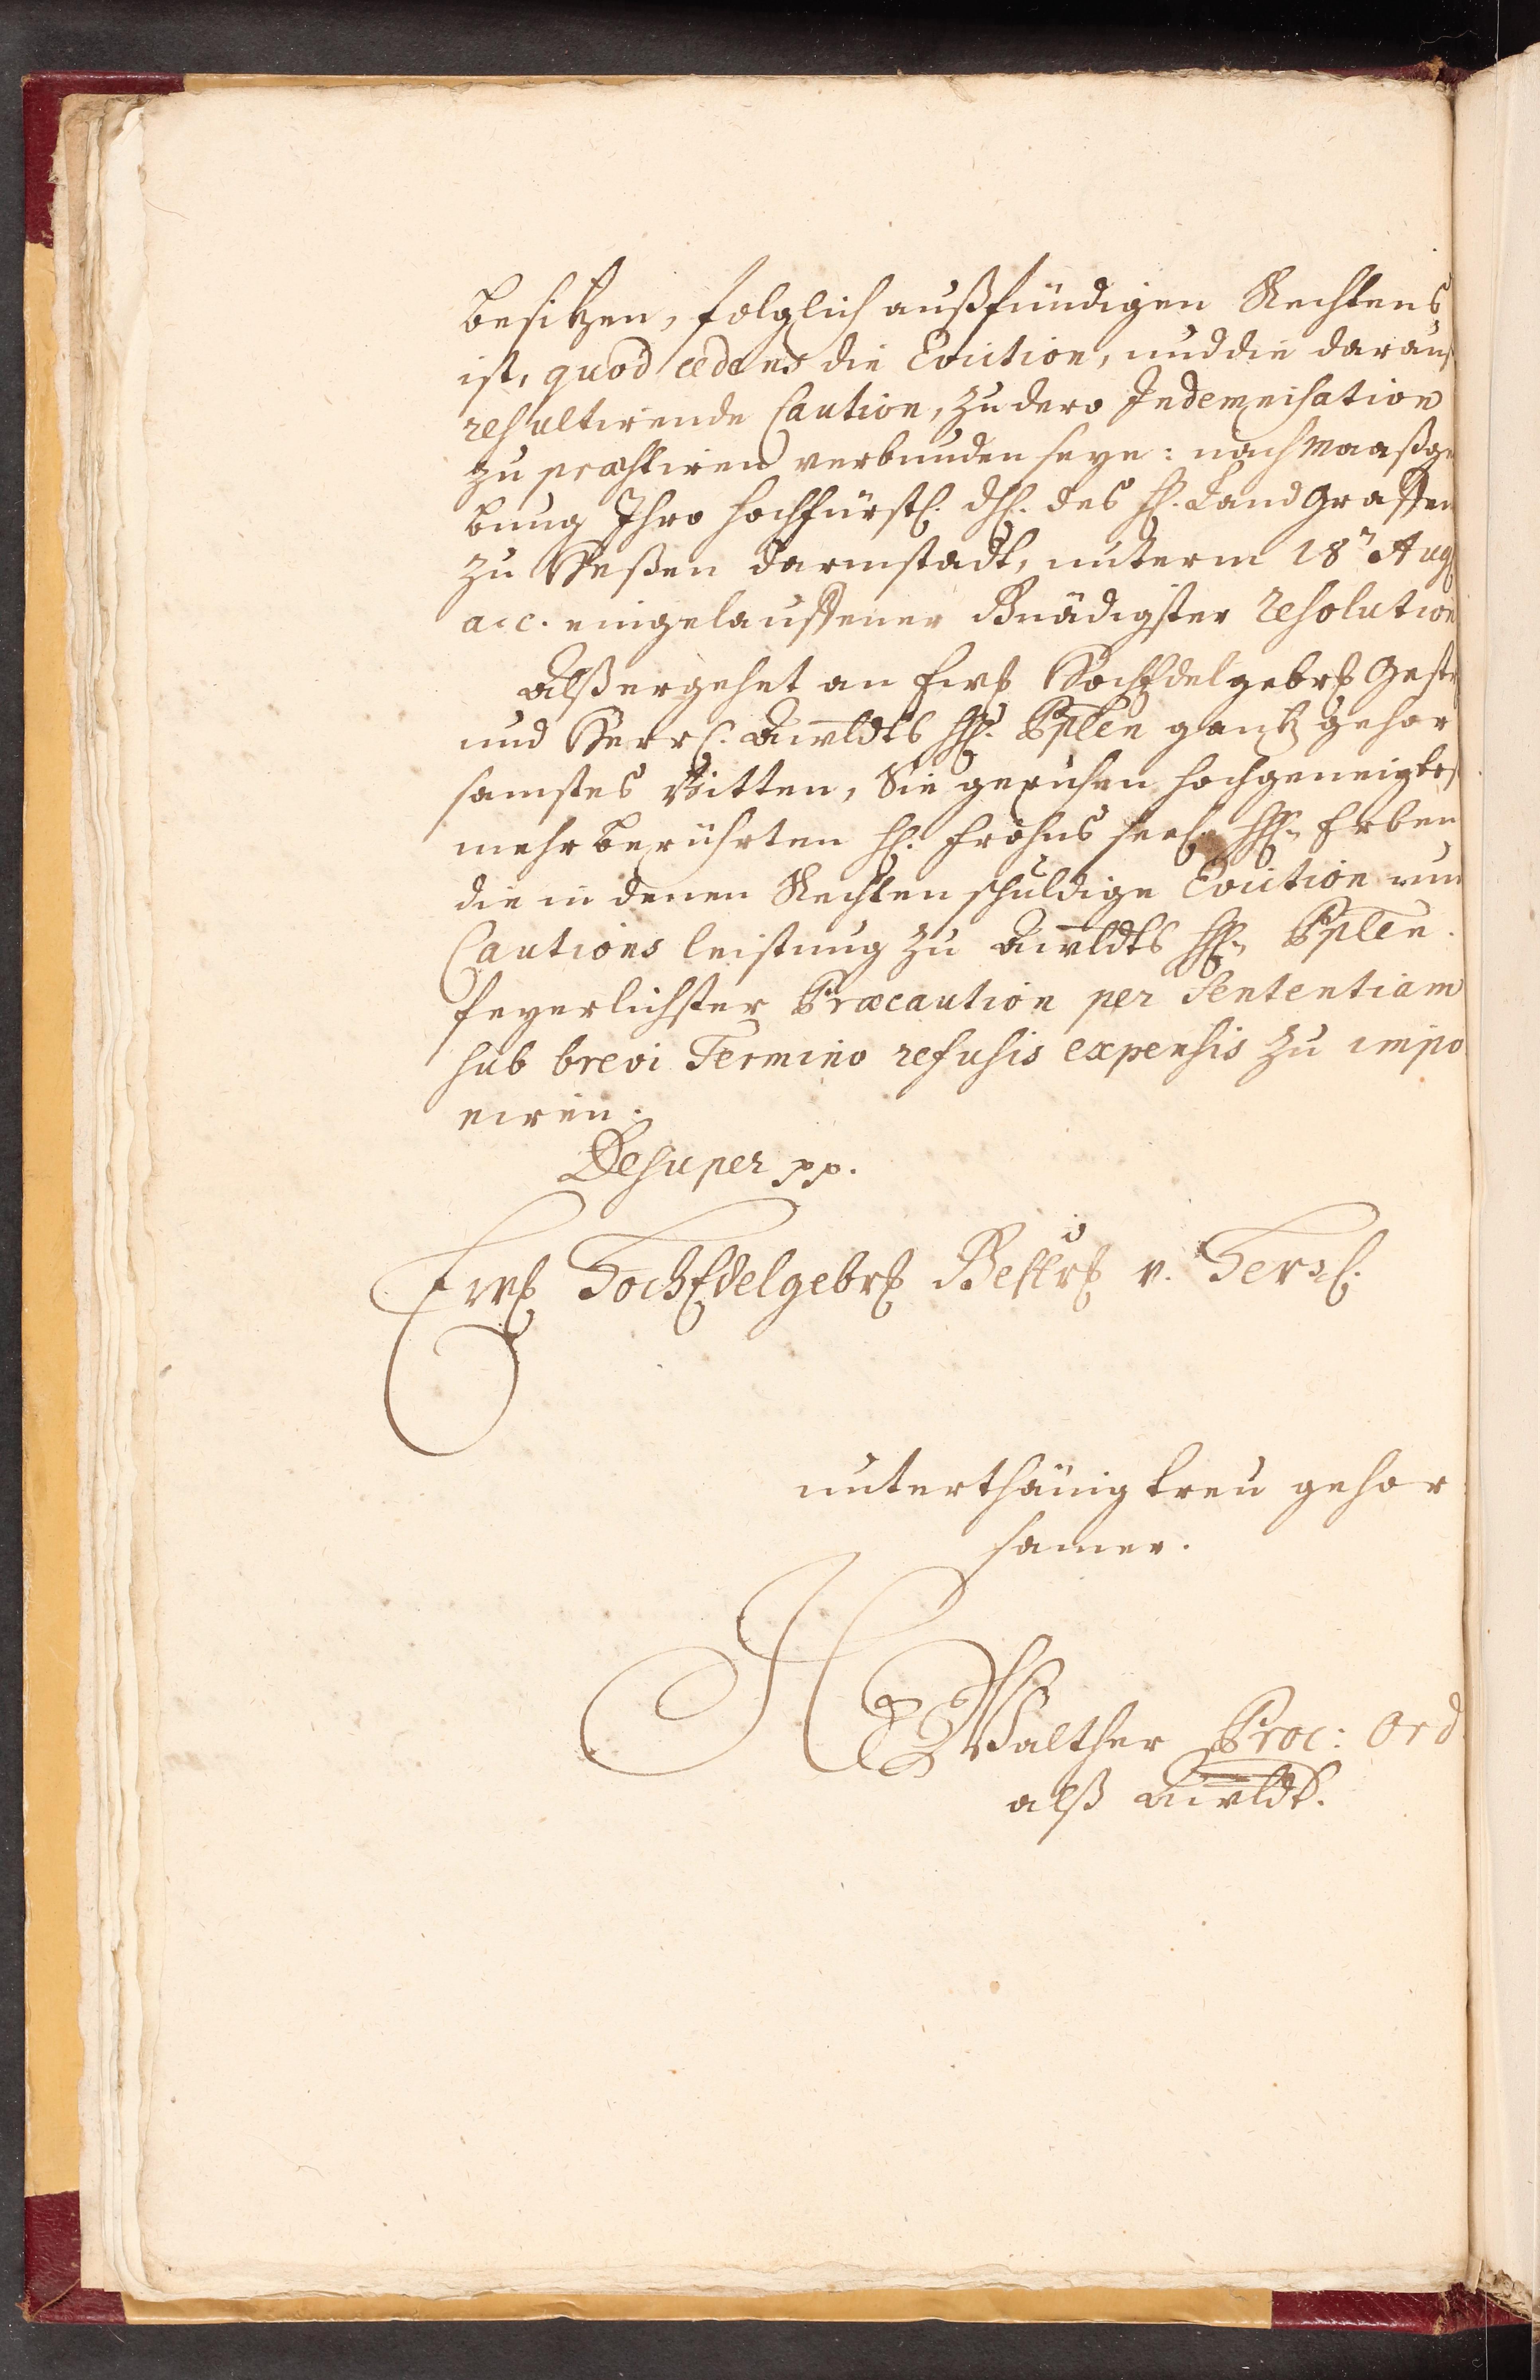 besitzen, folglich außfündigen Rechtens
ist, quod cedens die Eviction, und die darauß
resultirende Caution, zu dero Indemnisation
zu præstiren verbunden seye: nach Maaßge
bung Ihro hochfürstl. dhl. des H. Land Graffen
zu Heßen Darmstadt, unterm 18t Aug
a.c. eingelauffener Gnädigster resolution
Alß ergehet an Ew. HochEdelgebr. Gestr.
und Herrl. Anwldts HH. Pplen gantz gehor
samstes Bitten, Sie geruhen hochgeneigtest
mehr berührten H. Frohns seel. HH. Erben
die in denen Rechten schuldige Eviction und
Cautions leistung zu Anwldts HH. Pplen.
feyerlichster Præcaution per Sententiam
sub brevi Termino refusis expensis zu impo
niren.
Desuper pp.
Ew. HochEdelgebr. Gestr. u. Herrl.
unterthänig treu gehor
samer.
Walther Proc: Ord
alß Anwldt.